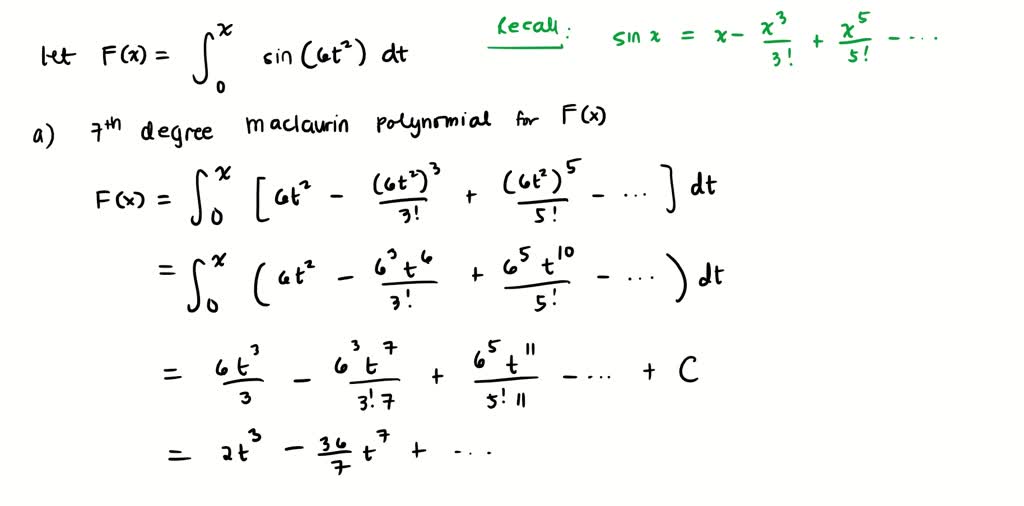 let F(x) = ∫₀ˣ sin (6t²) dt
Recall: sin x = x - x³/3! + x⁵/5! - ....
a) 7th degree maclaurin polynomial for F(x)
F(x) = ∫₀ˣ [6t² - (6t²)³/3! + (6t²)⁵/5! - ...] dt
= ∫₀ˣ (6t² - 6³t⁶/3! + 6⁵t¹⁰/5! - ...) dt
= 6t³/3 - 6³t⁷/3!7 + 6⁵t¹¹/5!11 - .... + C
= 2t³ - 36/7 t⁷ + ....